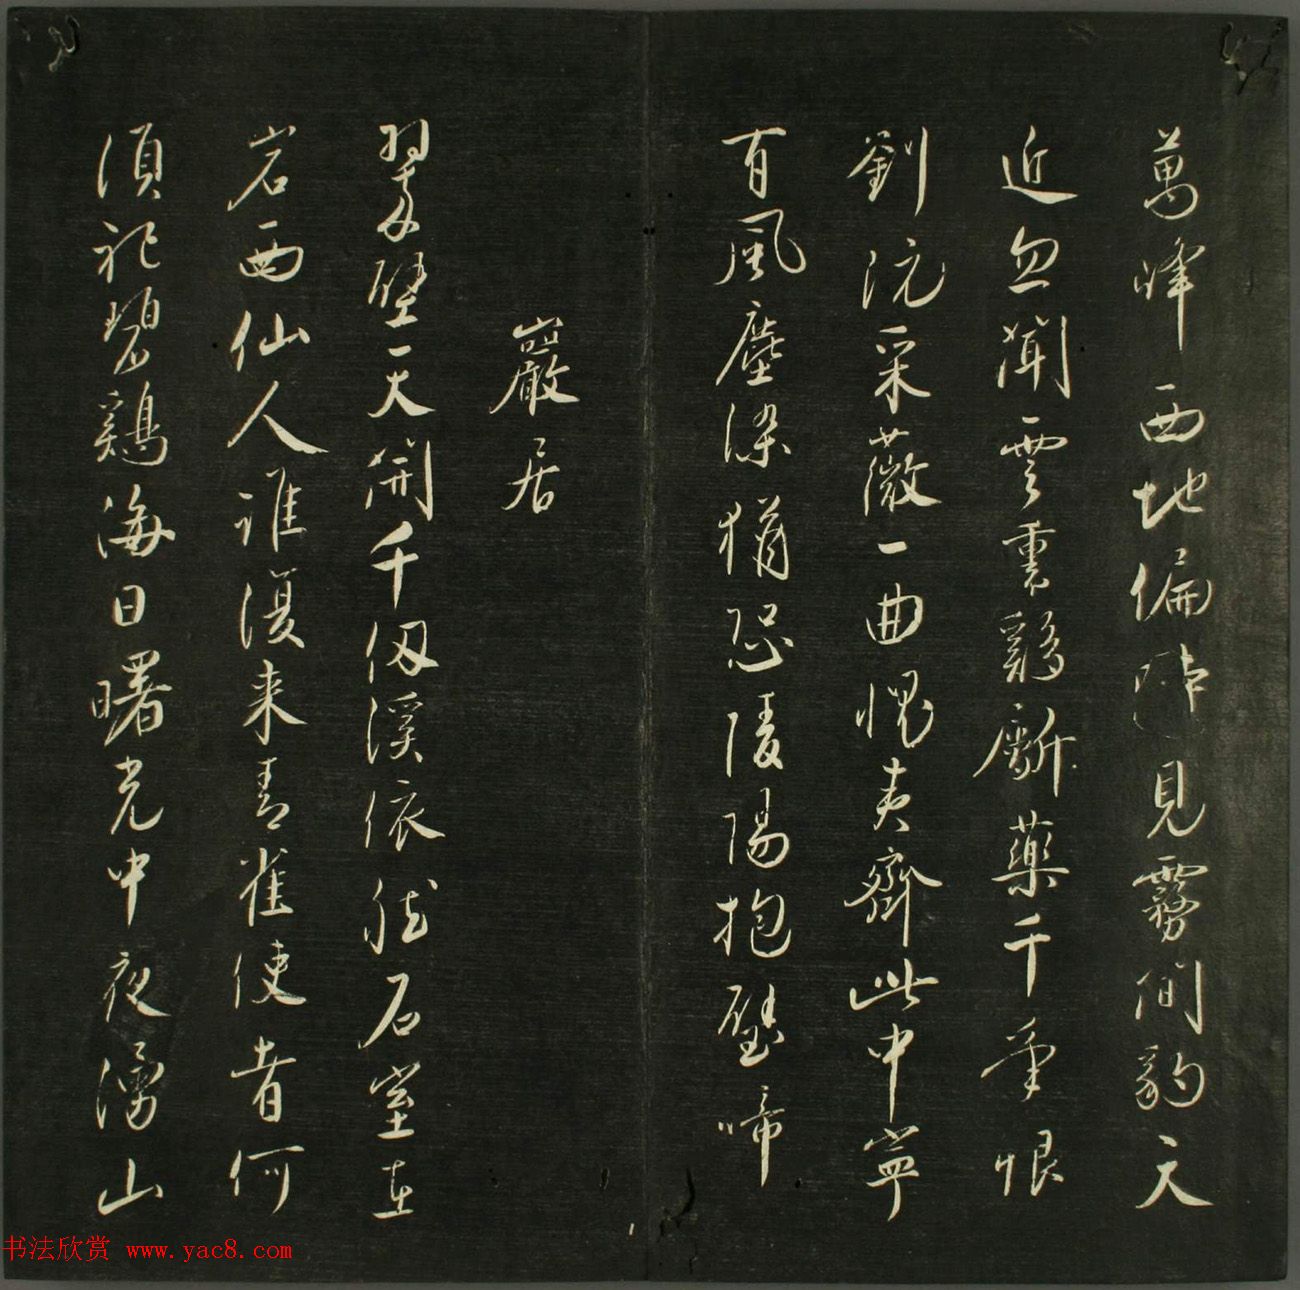 萬峰西地偏驚見霧間豹天
近忽聞雲裏鷄斸藥千年恨
劉阮采薇一曲愧夷齊此中寧
有風塵染猶恐陵陽抱璧啼
巖居
翠壁天開千仞溪依然石室在
岩西仙人誰復来青雀使者何
須祀碧鷄海日曙光中夜湧山
书法欣赏 www.yac8.com